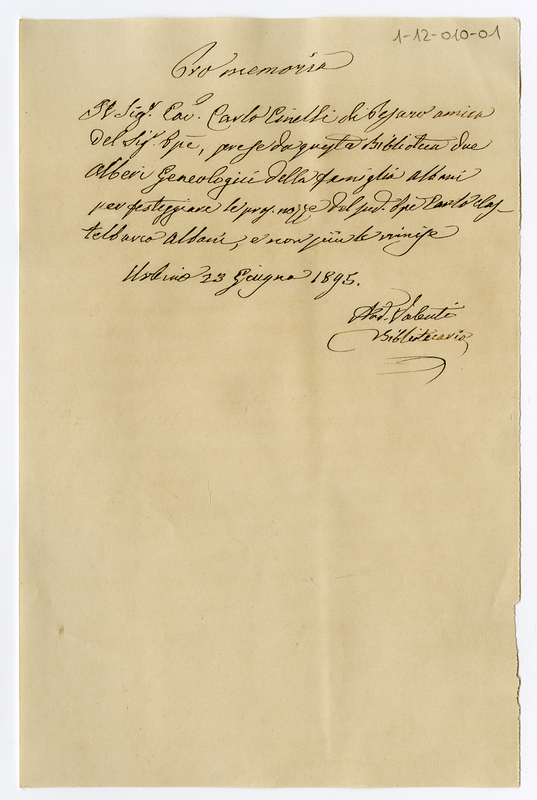 1-12-010-01
Pro memoria
Il Sigr. Cav. Carlo Cinelli di Pesaro amico
del Sigr. Ppe, prese da questa Biblioteca due
Alberi Geneologici della famiglia Albani
per festeggiare le pros. nozze del pred. Ppe Carlo Cas-
telbarco Albani, e non più le rimise
Urbino 23 Giugno 1895.
Valenti
Bibliotecario